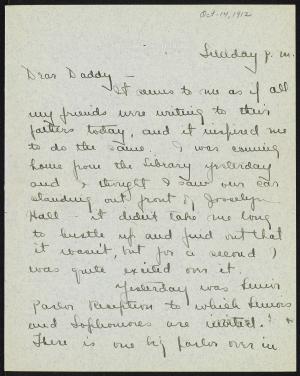 Oct-14, 1912
Sunday p.m.
Dear Daddy –
It seems to me as if all
my friends were writing to their
fathers today, and it inspired me
to do the same. I was coming
home from the Library yesterday
and I thought I saw our car
standing out front of Josselyn
Hall – it didn't take me long
to hustle up and find out that
it wasn't, but for a second I
was quite exited over it.
Yesterday was Senior
Parlor Reception to which Seniors
and Sophomores are invited.
There is one big parlor over in